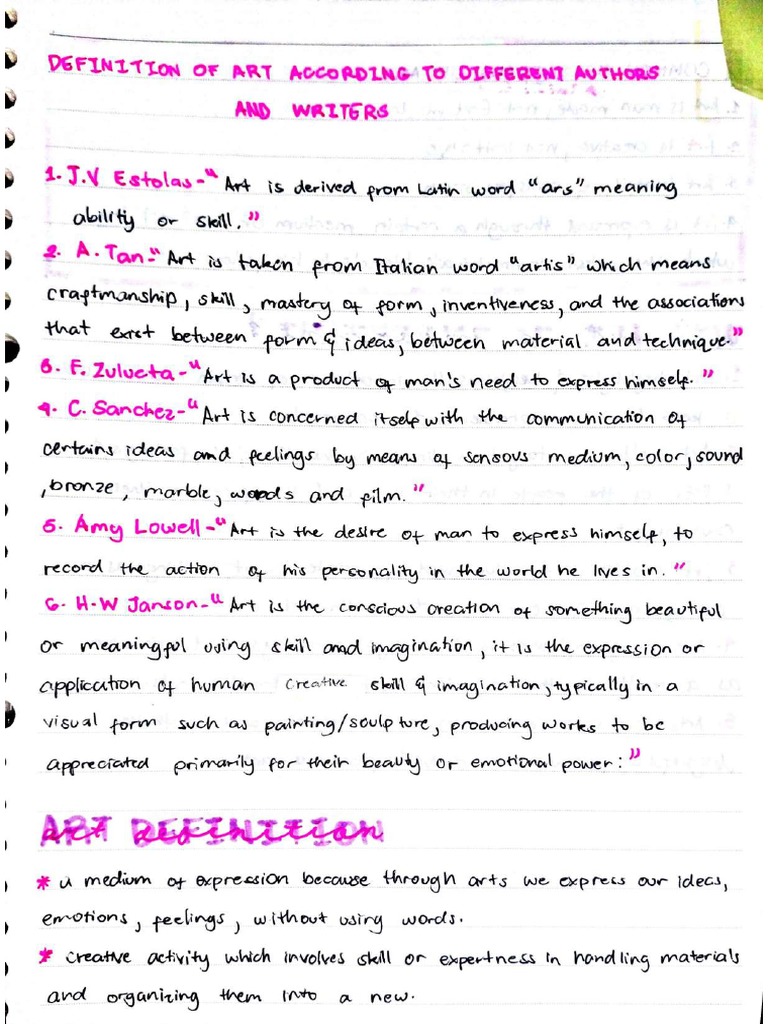 DEFINITION OF ART ACCORDING TO DIFFERENT AUTHORS
AND WRITERS
1. J.V Estolas-" Art is derived from Latin word "ars" meaning
ability or skill."
2. A. Tan-" Art is taken from Italian word "artis" which means
craftmanship, skill, mastery of form, inventiveness, and the associations
that exist between form & ideas, between material and technique."
3. F. Zulueta-" Art is a product of man's need to express himself."
4. C. Sanchez-" Art is concerned itself with the communication of
certains ideas and feelings by means of sensous medium, color, sound
, bronze, marble, words and film."
5. Amy Lowell-" Art is the desire of man to express himself, to
record the action of his personality in the world he lives in."
6. H.W Janson-" Art is the conscious creation of something beautiful
or meaningful using skill and imagination, it is the expression or
application of human creative skill & imagination, typically in a
visual form such as painting/sculpture, producing works to be
appreciated primarily for their beauty or emotional power:"
ART DEFINITION
* a medium of expression because through arts we express our ideas,
emotions, feelings, without using words.
* creative activity which involves skill or expertness in handling materials
and organizing them into a new.